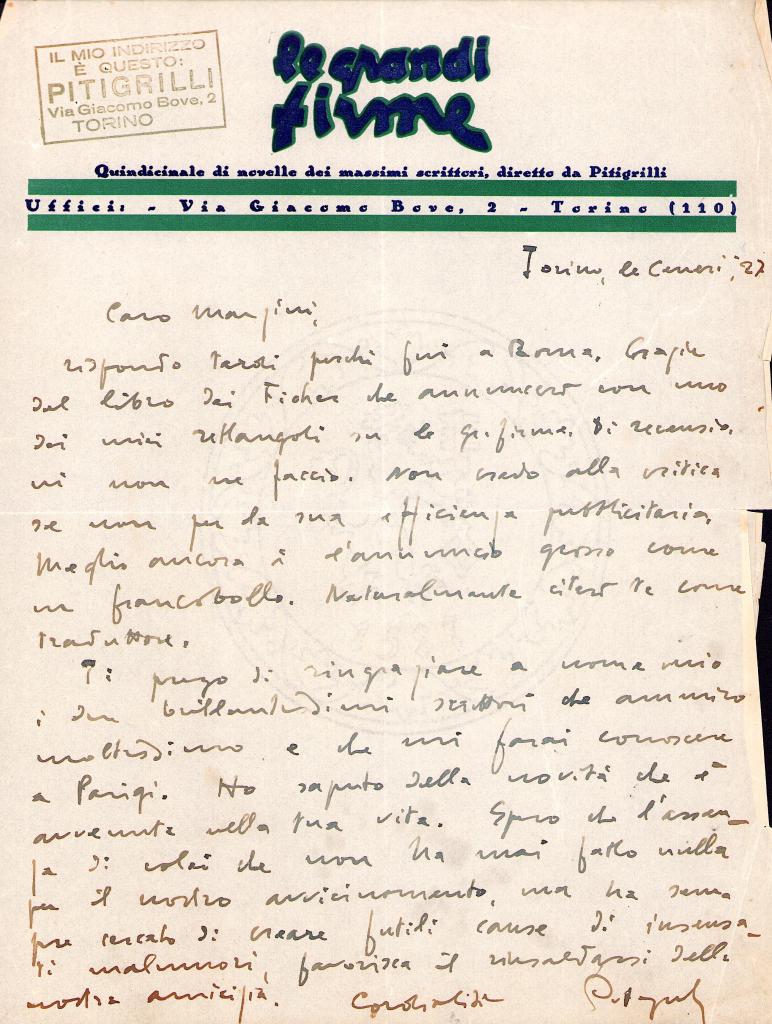 IL MIO INDIRIZZO
È QUESTO:
PITIGRILLI
Via Giacomo Bove, 2
TORINO
le grandi
firme
Quindicinale di novelle dei massimi scrittori, diretto da Pitigrilli
Uffici: - Via Giacomo Bove, 2 - Torino (110)
Torino, le Ceneri, '27
Caro Manzini,
rispondo tardi perchè fui a Roma. Grazie
del libro dei Fischer che annuncerò con uno
dei miei rettangoli su le g. firme. Di recensio-
ni non ne faccio. Non credo alla critica
se non per la sua efficienza pubblicitaria.
Meglio ancora è l'annuncio grosso come
un francobollo. Naturalmente citerò te come
traduttore.
Ti prego di ringraziare a nome mio
i due brillantissimi scrittori che ammiro
moltissimo e che mi farai conoscere
a Parigi. Ho saputo della novità che è
avvenuta nella tua vita. Spero che l'assen-
za di colei che non ha mai fatto nulla
per il nostro avvicinamento, ma ha sem
pre cercato di creare futili cause di insensa-
ti malumori, favorisca il rinsaldarsi della
nostra amicizia. Cordialità Pitigrilli